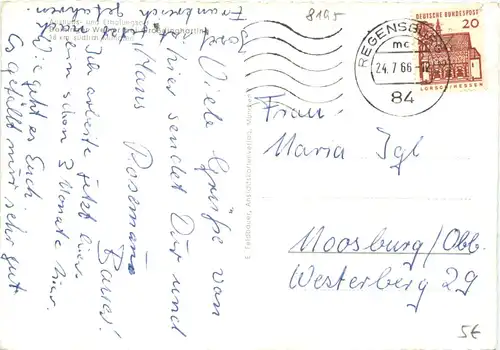 8195
Viele Grüße von
hier sendet Dir und
Hans Rosemarie
Bauer!
Ich arbeite jetzt hier
schon 3 Monate hier.
Wie geht es Euch.
Es gefällt mir sehr gut
Frankreich gefahren.
E. Feldbauer, Ansichtskartenverlag, München
DEUTSCHE BUNDESPOST
20
LORSCH/HESSEN
REGENSBURG
mc
24.7.66
84
Frau
Maria Igl
Moosburg/Obb.
Westerberg 29
5€